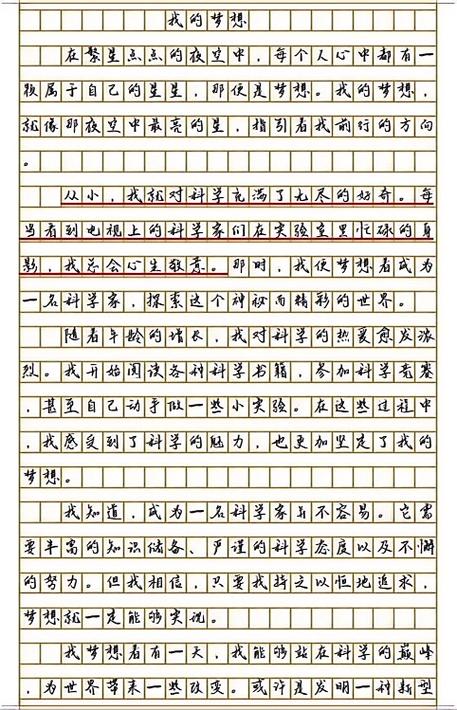 我的梦想
在繁星点点的夜空中，每个人心中都有一
颗属于自己的星星，那便是梦想。我的梦想，
就像那夜空中最亮的星，指引着我前行的方向
。
从小，我就对科学充满了无尽的好奇。每
当看到电视上的科学家们在实验室里忙碌的身
影，我总会心生敬意。那时，我便梦想着成为
一名科学家，探索这个神秘而精彩的世界。
随着年龄的增长，我对科学的热爱愈发浓
烈。我开始阅读各种科学书籍，参加科学竞赛
，甚至自己动手做一些小实验。在这些过程中
，我感受到了科学的魅力，也更加坚定了我的
梦想。
我知道，成为一名科学家并不容易。它需
要丰富的知识储备、严谨的科学态度以及不懈
的努力。但我相信，只要我持之以恒地追求，
梦想就一定能够实现。
我梦想着有一天，我能够站在科学的巅峰
，为世界带来一些改变。或许是发明一种新型